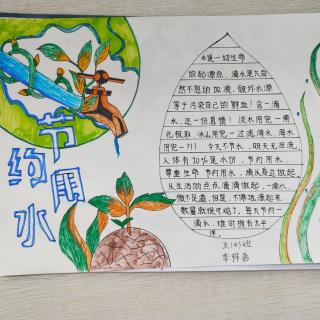 节约用水
水是一切生命
的起源点,滴水是大自
然不息的血液,破坏水源
等于污染自己的鲜血!含一滴
水,还一份真情!淡水用完一南
北极取,冰山用完一过滤海水 海水
用完一?!! 今天不节水,明天无泪流,
人体有70%是水份,节约用水,
尊重生命 节约用水,滴水是边做起,
从生活的点点滴滴做起,一滴水,
微不足道,但是,不停地滴起来
数量就很可观了。每天节约一
滴水,难时拥有太平
洋。
五(9)班